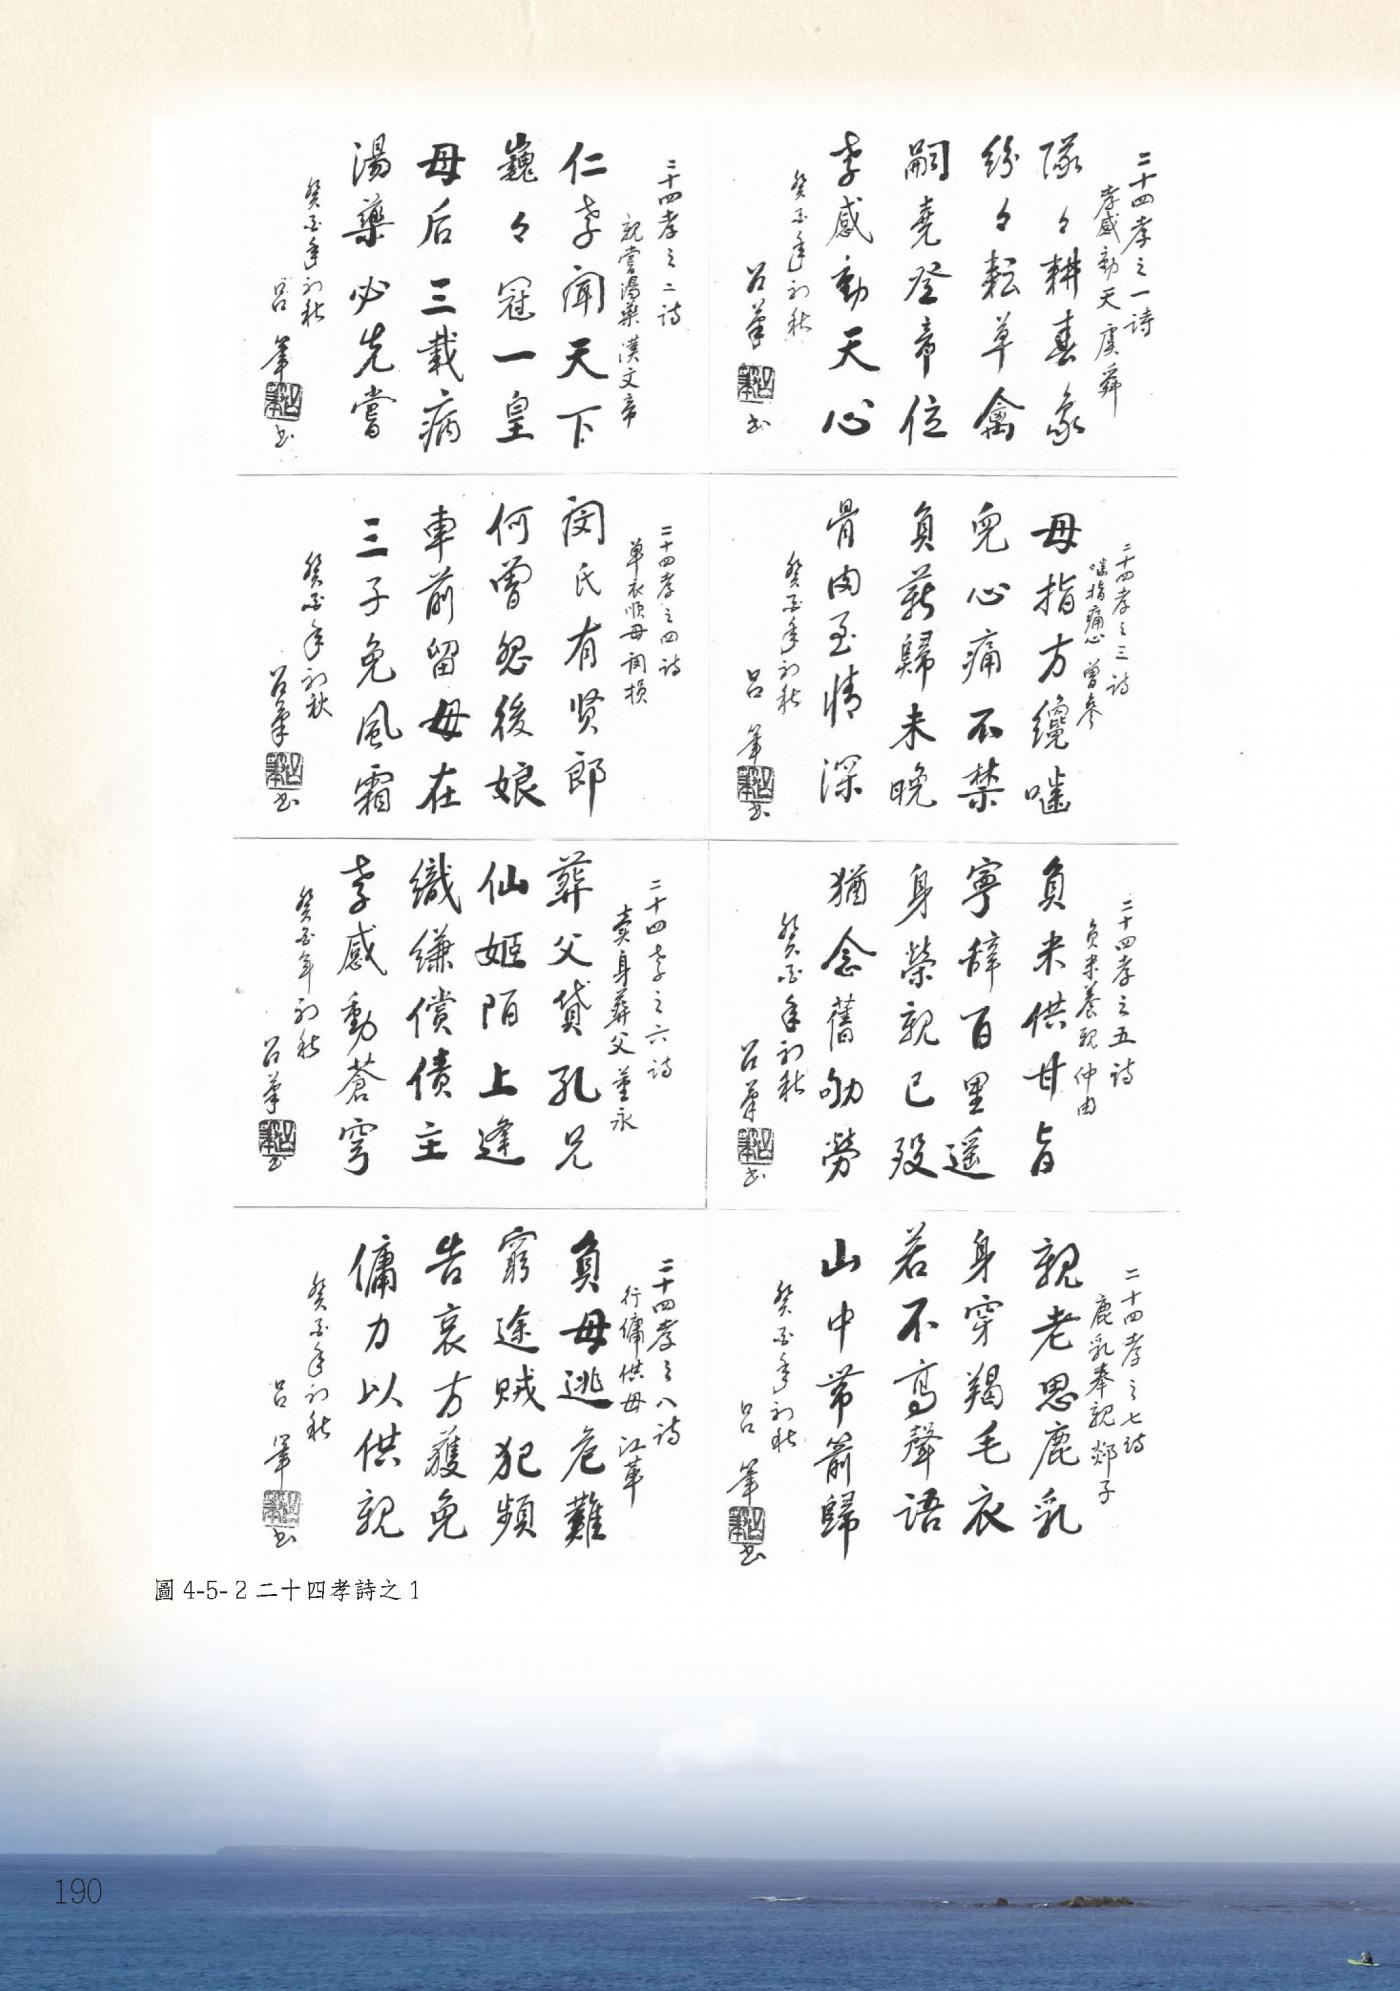 二十四孝之一詩
孝感動天 虞舜
隊々耕春象
紛々耘草禽
嗣堯登帝位
孝感動天心
癸酉年初秋
呂筆
書
二十四孝之二詩
親嘗湯藥 漢文帝
仁孝聞天下
巍々冠一皇
母后三載病
湯藥必先嘗
癸酉年初秋
呂筆
書
二十四孝之三詩
嚙指痛心 曾參
母指方纔嚙
兒心痛不禁
負薪歸未晚
骨肉至情深
癸酉年初秋
呂筆
書
二十四孝之四詩
單衣順母 閔損
閔氏有賢郎
何曾怨後娘
車前留母在
三子免風霜
癸酉年初秋
呂筆
書
二十四孝之五詩
負米養親 仲由
負米供甘旨
寧辭百里遥
身榮親已歿
猶念舊劬勞
癸酉年初秋
呂筆
書
二十四孝之六詩
賣身葬父 董永
葬父貸孔兄
仙姬陌上逢
織縑償債主
孝感動蒼穹
癸酉年初秋
呂筆
書
二十四孝之七詩
鹿乳奉親 郯子
親老思鹿乳
身穿羯毛衣
若不高聲語
山中帶箭歸
癸酉年初秋
呂筆
書
二十四孝之八詩
行傭供母 江革
負母逃危難
窮途賊犯頻
告哀方獲免
傭力以供親
癸酉年初秋
呂筆
書
圖 4-5-2 二十四孝詩之 1
190